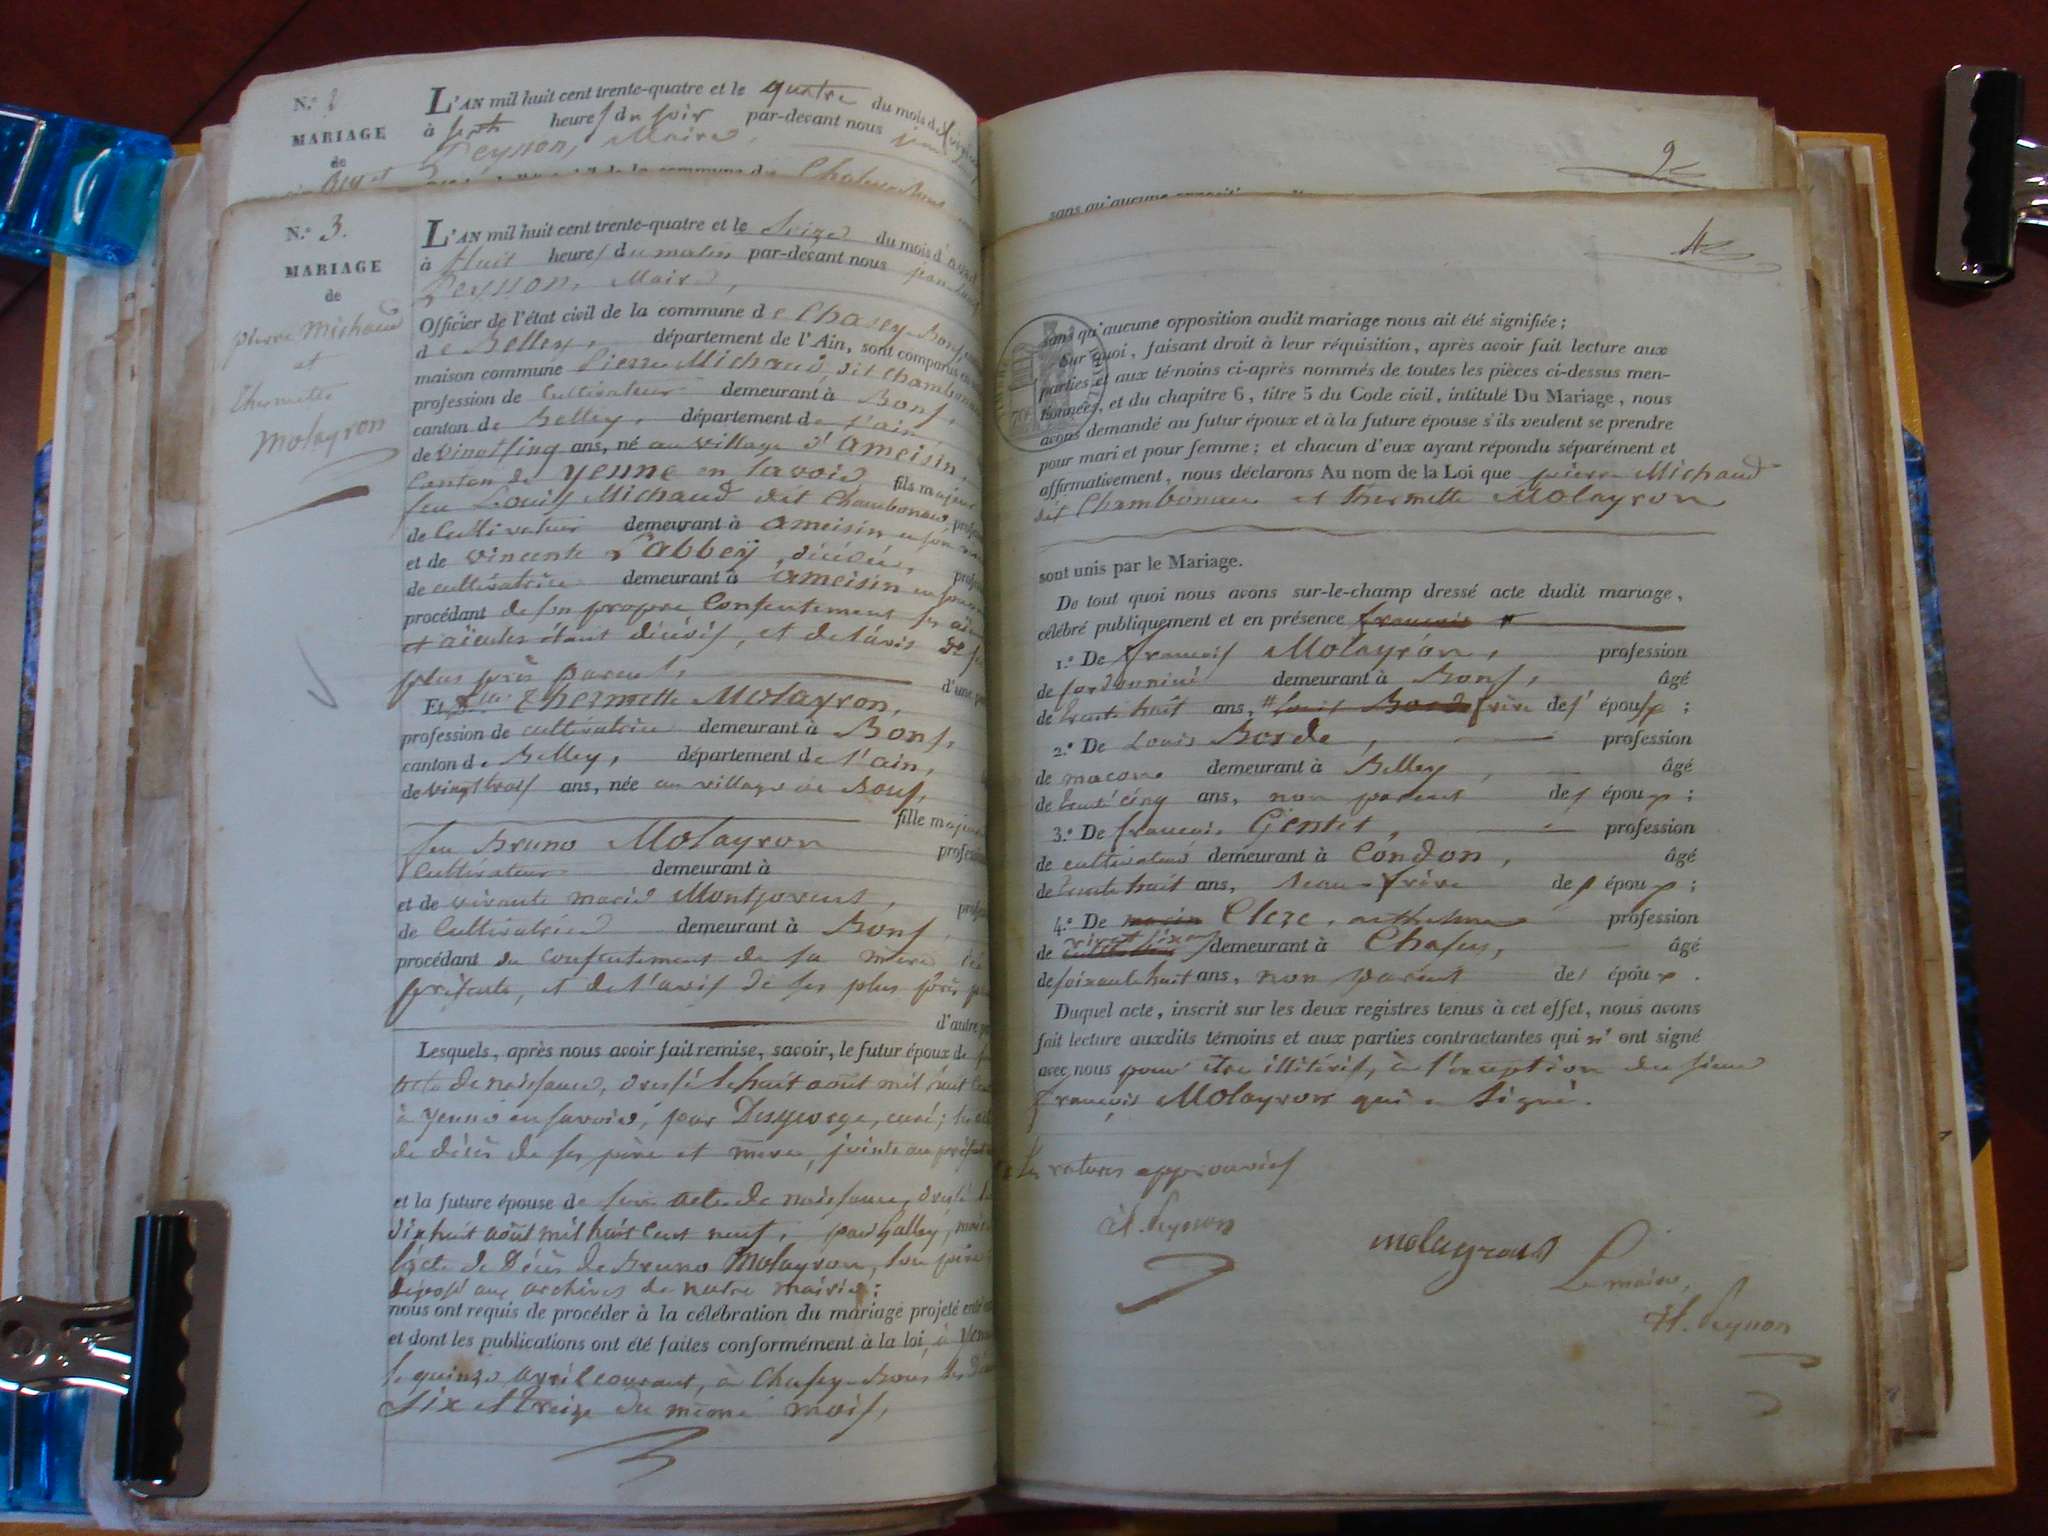 N.º 2
MARIAGE
de
L'AN mil huit cent trente-quatre et le quatre du mois de
à sept heures du soir par-devant nous
Peysson, Maire,
N.º 3.
MARIAGE
de
pierre Michaud
et
thermette
Molayron
L'AN mil huit cent trente-quatre et le Seize du mois d'avril
à Huit heures du matin par-devant nous
Peysson, Maire,
Officier de l'état civil de la commune de Chasey-Bons
de Belley, département de l'Ain, sont comparus
maison commune Pierre Michaud, dit Chambonau
profession de Cultivateur demeurant à Bons,
canton de Belley, département de l'ain,
de vingt cinq ans, né au village d'ameisin,
Canton de yenne en Savoie fils majeur
feu Louis Michaud dit Chambonau,
de Cultivateur demeurant à ameisin
et de vincente Labbey, décédée,
de cultivatrice demeurant à ameisin
procédant de son propre Consentement ses
et aïeules étant décédés, et de l'avis de ses
plus près parents, d'une
Et thermette Molayron,
profession de cultivatrice demeurant à Bons,
canton de Belley, département de l'ain,
de vingt trois ans, née au village de Bons,
fille majeure
feu Bruno Molayron
Cultivateur demeurant à
et de vivante marie Montpovens,
de Cultivatrice demeurant à Bons,
procédant du consentement de sa mère
présente, et de l'avis de ses plus près
d'autre
Lesquels, après nous avoir fait remise, savoir, le futur époux de
acte de naissance, dressé le huit août mil huit
à yenne en savoie, par Desgeorge, curé;
de décès de ses père et mère, joints au présent
et la future épouse de son acte de naissance, dressé
dix huit août mil huit cent neuf, par Galley,
l'acte de Décès de Bruno Molayron, son père
déposé aux archives de notre mairie;
nous ont requis de procéder à la célébration du mariage projeté
et dont les publications ont été faites conformément à la loi, à
le quinze avril courant, à Chasey-Bons les
Six et treize du même mois,
2
sans qu'aucune opposition
4
sans qu'aucune opposition audit mariage nous ait été signifiée;
Sur quoi, faisant droit à leur réquisition, après avoir fait lecture aux
parties et aux témoins ci-après nommés de toutes les pièces ci-dessus men-
tionnées, et du chapitre 6, titre 5 du Code civil, intitulé Du Mariage, nous
avons demandé au futur époux et à la future épouse s'ils veulent se prendre
pour mari et pour femme; et chacun d'eux ayant répondu séparément et
affirmativement, nous déclarons Au nom de la Loi que pierre Michaud
dit Chambonau et thermette Molayron
sont unis par le Mariage.
De tout quoi nous avons sur-le-champ dressé acte dudit mariage,
célébré publiquement et en présence françois
1.º De françois Molayron, profession
de cordonnier demeurant à Bons, âgé
de trente huit ans, Louis Borde frère de l'épouse;
2.º De Louis Borde, profession
de macon demeurant à Belley, âgé
de trente cinq ans, non parent des époux;
3.º De françois Gentet, profession
de cultivateur demeurant à Condon, âgé
de trente huit ans, beau-frère des époux;
4.º De Clerc, anthelme profession
de demeurant à Chasey, âgé
de soixante huit ans, non parent des époux.
Duquel acte, inscrit sur les deux registres tenus à cet effet, nous avons
fait lecture auxdits témoins et aux parties contractantes qui n'ont signé
avec nous pour être illitérés, à l'exception du sieur
françois Molayron qui a signé.
Les ratures approuvées
H. Peysson
molayron
Le maire,
H. Peysson